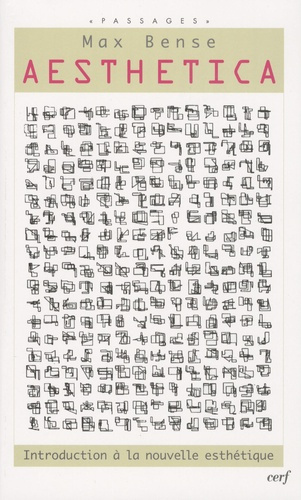 « PASSAGES »
Max Bense
AESTHETICA
Introduction à la nouvelle esthétique
cerf